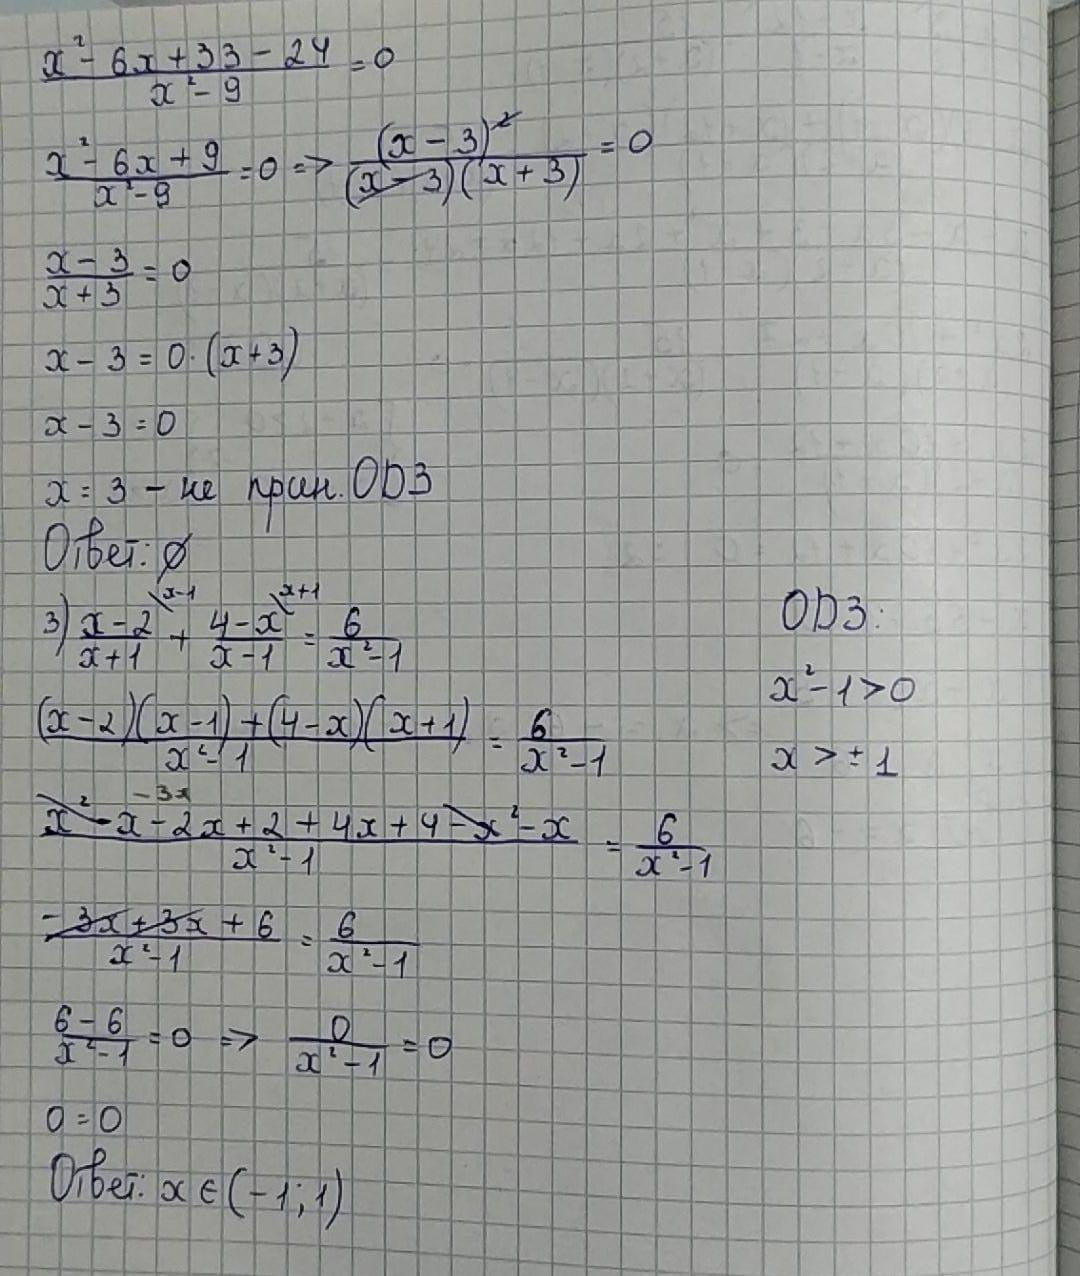 x² - 6x + 33 - 24 / x² - 9 = 0
x² - 6x + 9 / x² - 9 = 0 => (x - 3)² / (x - 3)(x + 3) = 0
x - 3 / x + 3 = 0
x - 3 = 0 · (x + 3)
x - 3 = 0
x = 3 - не прин. ОДЗ
Ответ: ∅
3) x - 2 \x-1 / x + 1 + 4 - x \x+1 / x - 1 = 6 / x² - 1
ОДЗ:
x² - 1 > 0
x > ± 1
(x - 2)(x - 1) + (4 - x)(x + 1) / x² - 1 = 6 / x² - 1
-3x
x² - x - 2x + 2 + 4x + 4 - x² - x / x² - 1 = 6 / x² - 1
- 3x + 3x + 6 / x² - 1 = 6 / x² - 1
6 - 6 / x² - 1 = 0 => 0 / x² - 1 = 0
0 = 0
Ответ: x ∈ (-1; 1)